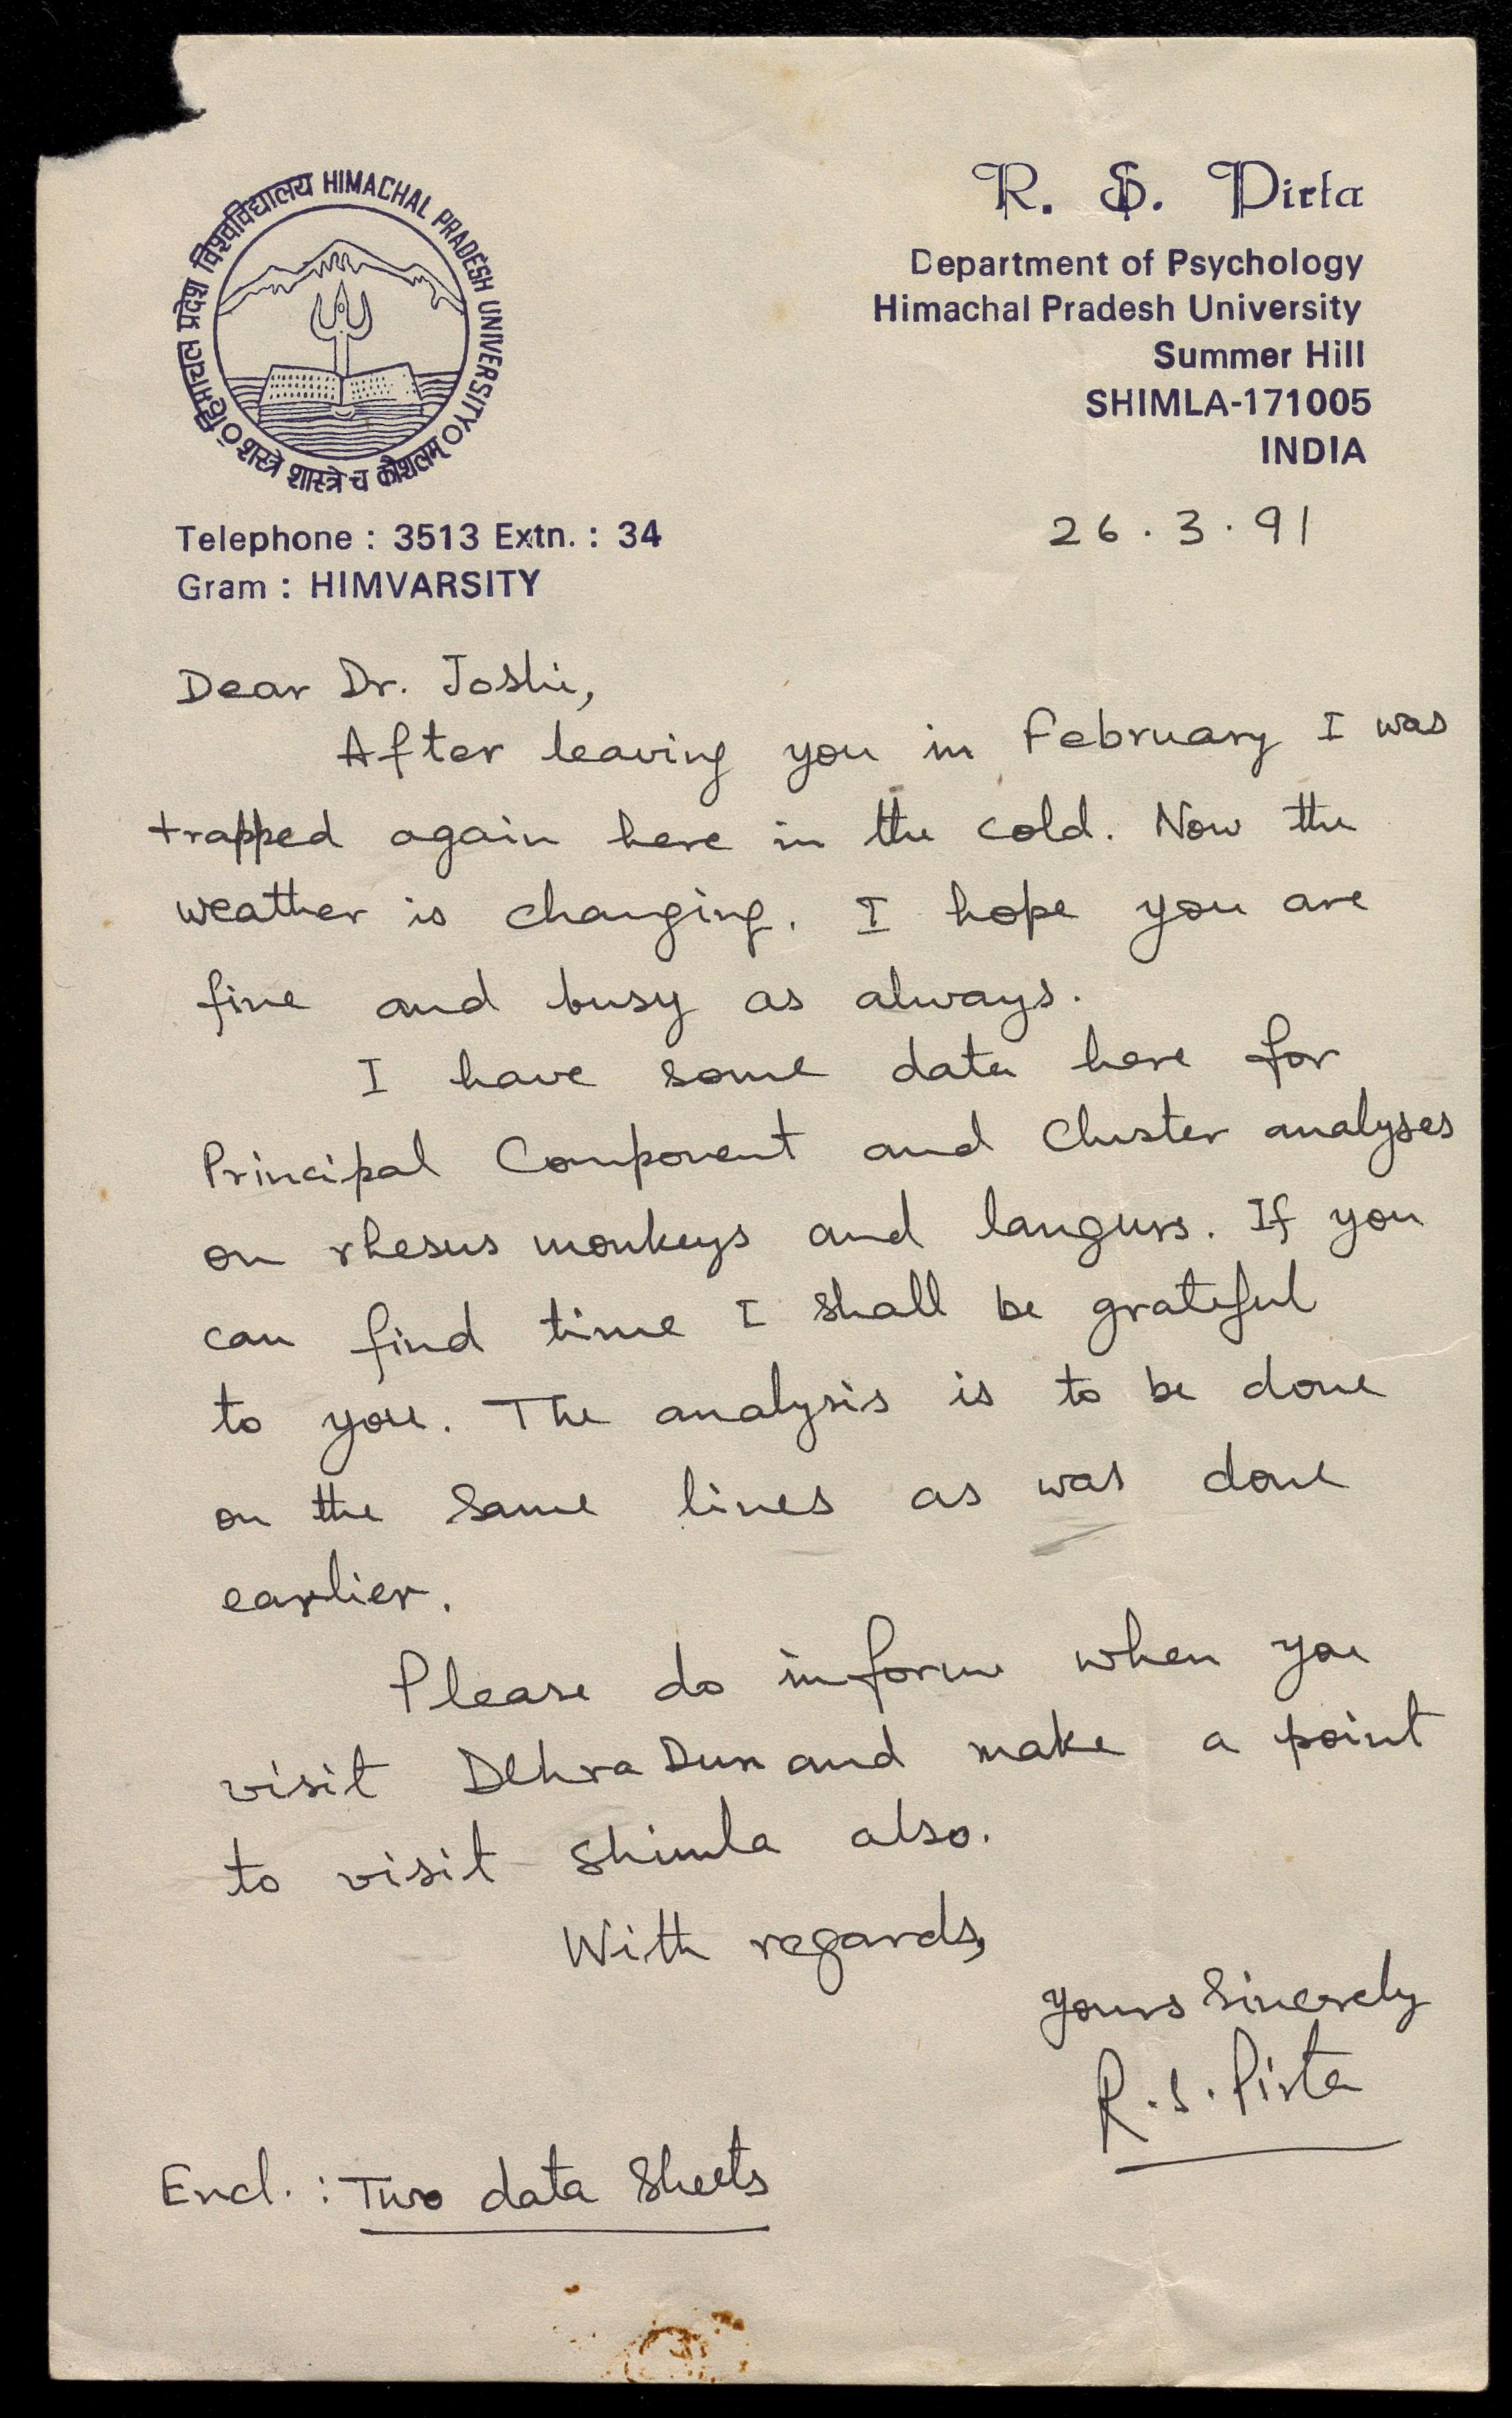 हिमाचल प्रदेश विश्वविद्यालय HIMACHAL PRADESH UNIVERSITY
शस्त्रे शास्त्रे च कौशलम्
R. S. Pirta
Department of Psychology
Himachal Pradesh University
Summer Hill
SHIMLA-171005
INDIA
Telephone : 3513 Extn. : 34
Gram : HIMVARSITY
26.3.91
Dear Dr. Joshi,
After leaving you in February I was
trapped again here in the cold. Now the
weather is changing. I hope you are
fine and busy as always.
I have some data here for
Principal Component and Cluster analyses
on rhesus monkeys and langurs. If you
can find time I shall be grateful
to you. The analysis is to be done
on the same lines as was done
earlier.
Please do inform when you
visit Dehra Dun and make a point
to visit Shimla also.
With regards,
Yours Sincerely
R.S. Pirta
Encl. : Two data Sheets